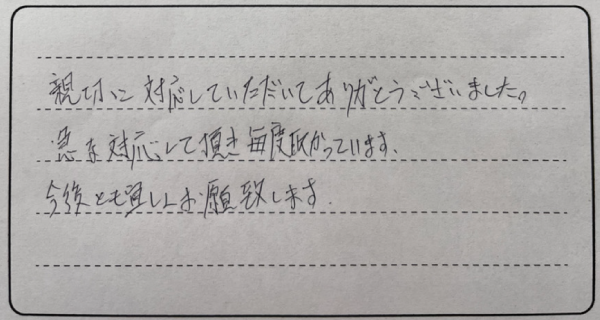 親切に対応していただいてありがとうございました。
急な対応して頂き毎度助かっています。
今後とも宜しくお願致します。